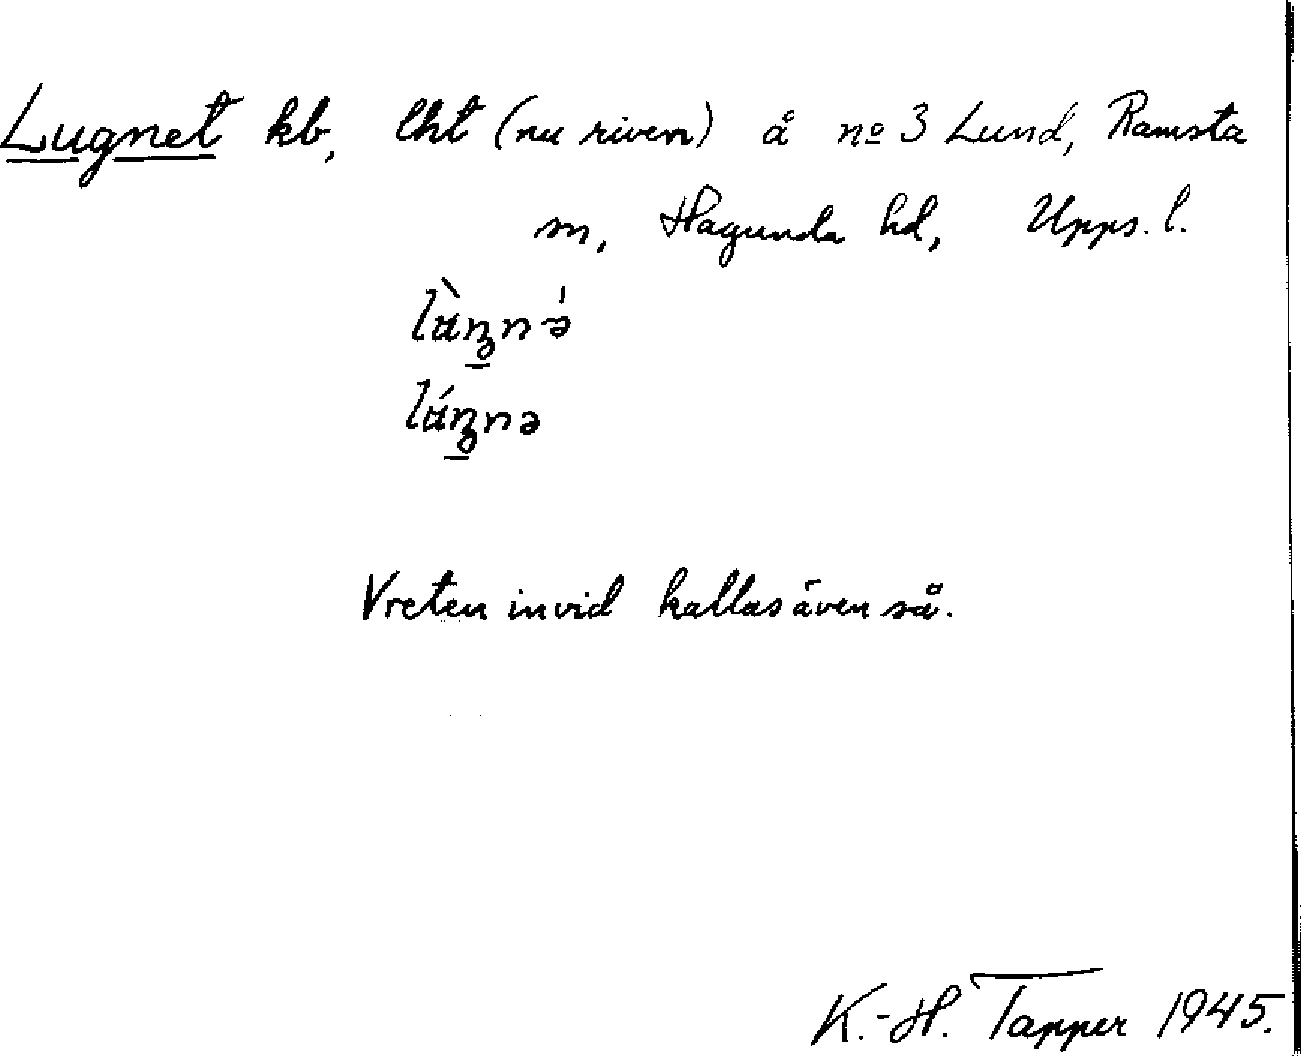 Lugnet kb, lht (nu riven) å nº 3 Lund, Ramsta
sn, Hagunda hd, Upps. l.
Vreten invid kallas även så.
K.-H. Tapper 1945.